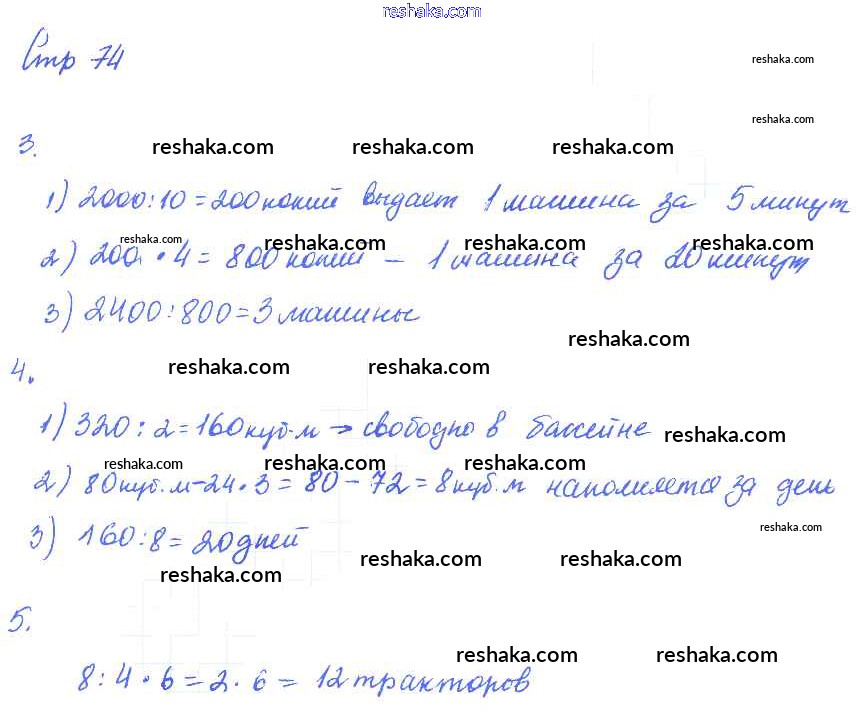 reshaka.com
Стр 74
reshaka.com
reshaka.com
3. reshaka.com reshaka.com reshaka.com
1) 2000:10=200 копий выдает 1 машина за 5 минут
reshaka.com reshaka.com reshaka.com reshaka.com
2) 200 • 4 = 800 копий – 1 машина за 20 минут
3) 2400:800=3 машины
reshaka.com
4. reshaka.com reshaka.com
1) 320:2=160 куб.м → свободно в бассейне
reshaka.com
reshaka.com reshaka.com reshaka.com
2) 80 куб.м-24•3=80-72=8 куб.м наполняется за день
reshaka.com
3) 160:8=20 дней
reshaka.com reshaka.com reshaka.com
5.
reshaka.com reshaka.com
8:4•6=2•6=12 тракторов